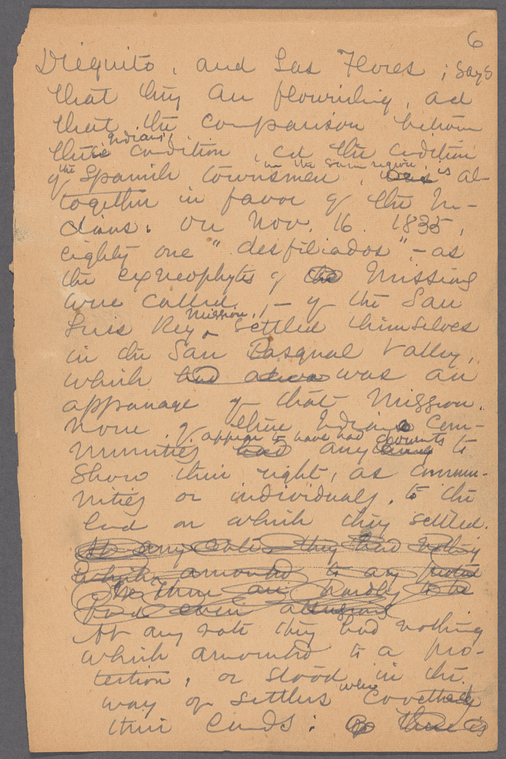 6
Dieguito, and Las Flores; says
that they are flourishing, and
that the comparison between
these Indians' condition, and the condition
of the Spanish townsmen, in the same region, is al-
together in favor of the In-
dians. On Nov. 16. 1835,
eighty one "desfiliados" - as
the exneophytes of the Missions
were called, - of the San
Luis Rey Mission, settled themselves
in the San Pasqual Valley,
which had was an
appanage of that Mission.
None of these Indian Com-
munities appear to have had any documents to
show their right, as commu-
nities or individuals, to the
land on which they settled.
At any rate they had nothing
which amounted to any
At any rate they had nothing
which amounted to a pro-
tection, or stood in the
way of settlers who coveted
their lands: